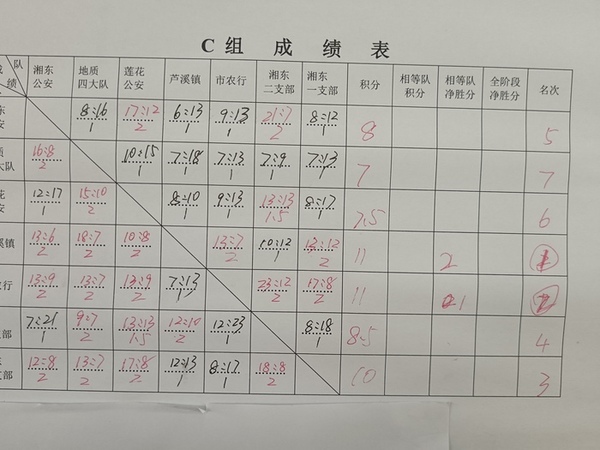 C组 成绩表
队 湘东公安 地质四大队 莲花公安 芦溪镇 市农行 湘东二支部 湘东一支部 积分 相等队积分 相等队净胜分 全阶段净胜分 名次
绩
东安 8:16 1 17:12 2 6:13 1 9:13 1 21:7 2 8:12 1 8 5
质大队 16:8 2 10:15 1 7:18 1 7:13 1 7:9 1 7:13 1 7 7
花安 12:17 1 15:10 2 8:10 1 9:13 1 13:13 1.5 8:17 1 7.5 6
溪镇 13:6 2 18:7 2 10:8 2 13:7 2 10:12 1 13:12 2 11 2 1
农行 13:9 2 13:7 2 13:9 2 7:13 1 23:12 2 17:8 2 11 1 2
支部 7:21 1 9:7 2 13:13 1.5 12:10 2 12:23 1 8:18 1 8.5 4
东支部 12:8 2 13:7 2 17:8 2 12:13 1 8:17 1 18:8 2 10 3